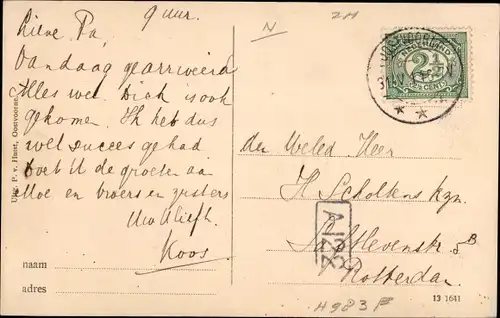 9 uur.
Lieve Pa,
Vandaag gearriveerd
Alles wel. Dick is ook
gekomen. Ik heb dus
wel succes gehad
Doet U de groeten aan
Moe en broers en zusters
Uw liefh.
Koos
naam
adres
Uitg. P. v. Hunt, Oostvoorne
N
NEDERLAND
2½
2½ CENT
den Weled Heer
H. Scholtens Kzn.
Rotterdam
A122
H983F
13 1641